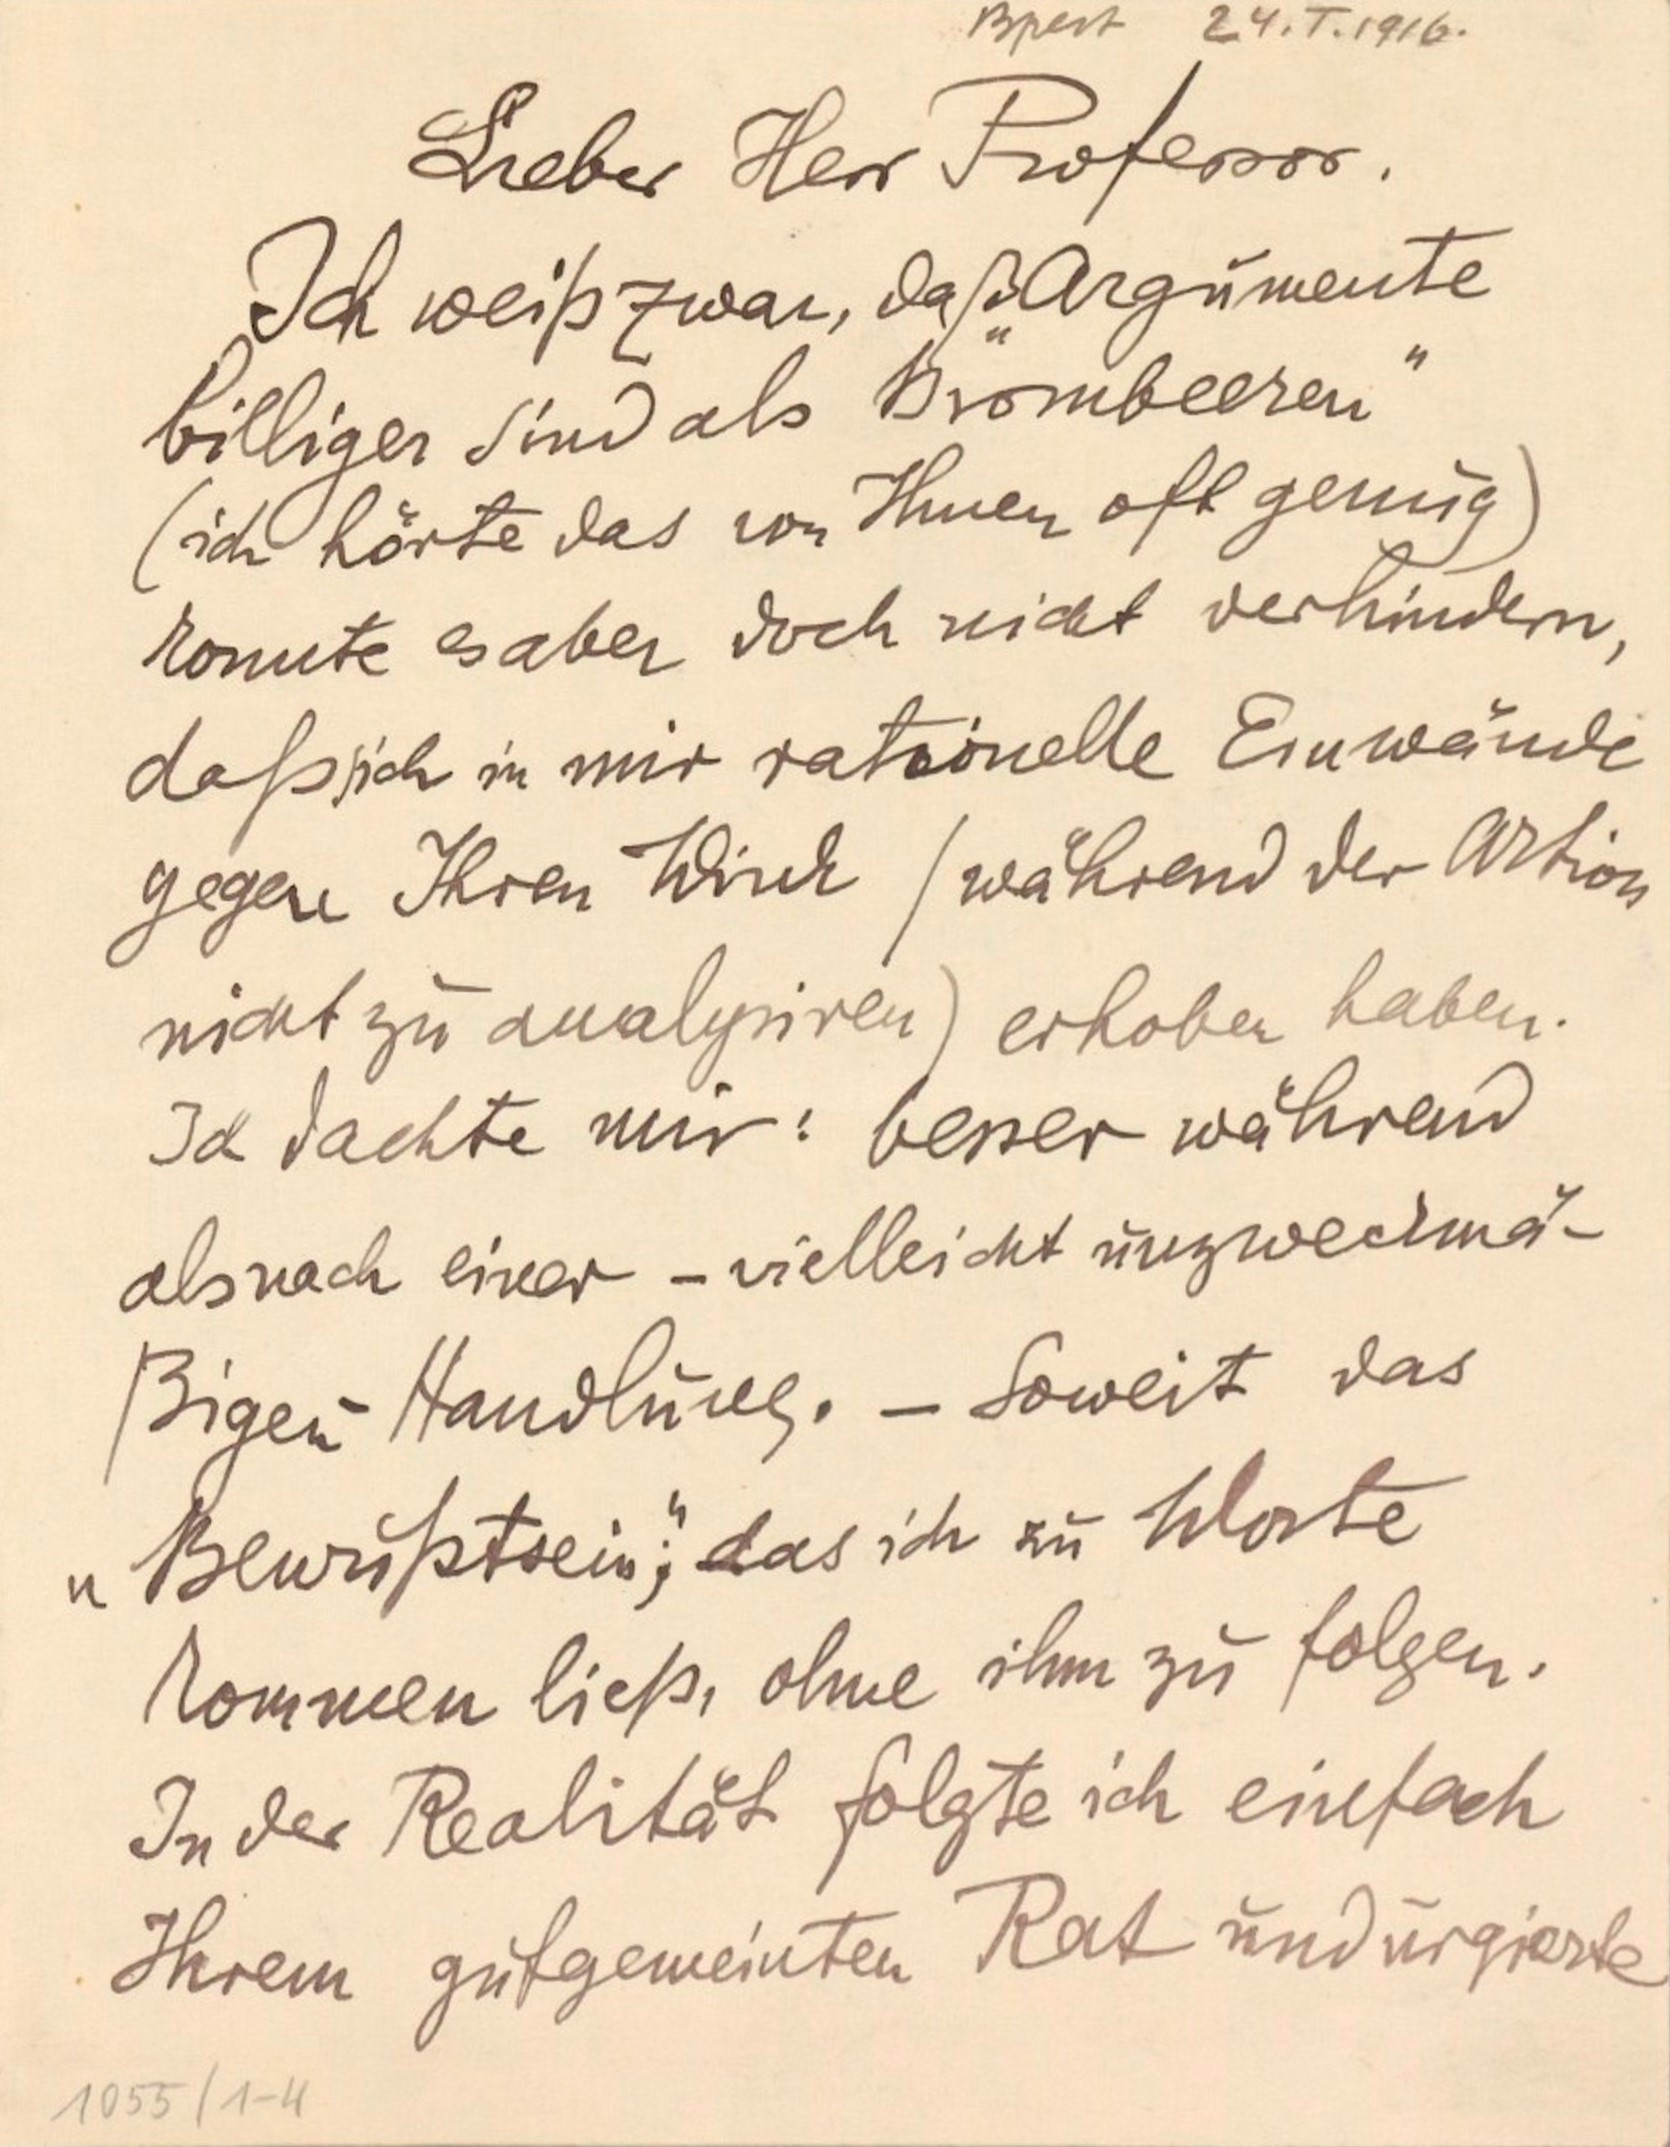 Bpest 24.I.1916.
Lieber Herr Professor.
Ich weiß zwar, daß Argumente
billiger sind als "Brombeeren"
(ich hörte das von Ihnen oft genug)
konnte es aber doch nicht verhindern,
daß sich in mir rationelle Einwände
gegen Ihren Wink (während der Aktion
nicht zu analysiren) erhoben haben.
Ich dachte mir: besser während
als nach einer – vielleicht unzweckmä-
ßigen – Handlung. – Soweit das
"Bewußtsein", das ich zu Worte
kommen ließ, ohne ihm zu folgen.
In der Realität folgte ich einfach
Ihrem gutgemeinten Rat und urgierte
1055/1-4